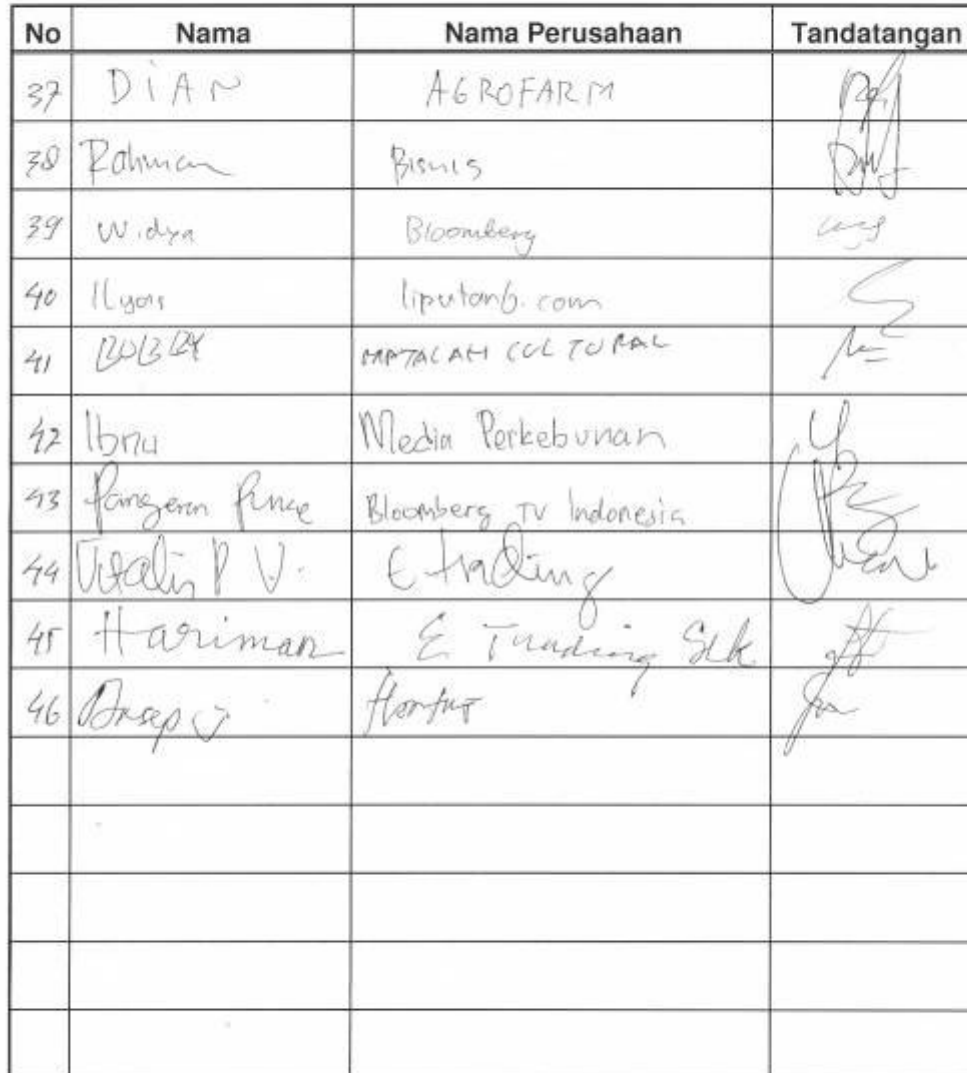 No Nama Nama Perusahaan Tandatangan
37 DIAN AGROFARM
38 Rahman Bisnis
39 Widya Bloomberg
40 Ilyas liputan6.com
41 BOBBY CULTURAL
42 Ibnu Media Perkebunan
43 Pangeran Bloomberg TV Indonesia
44 P V. E trading
45 Hariman E Trading Sek
46 Asep J